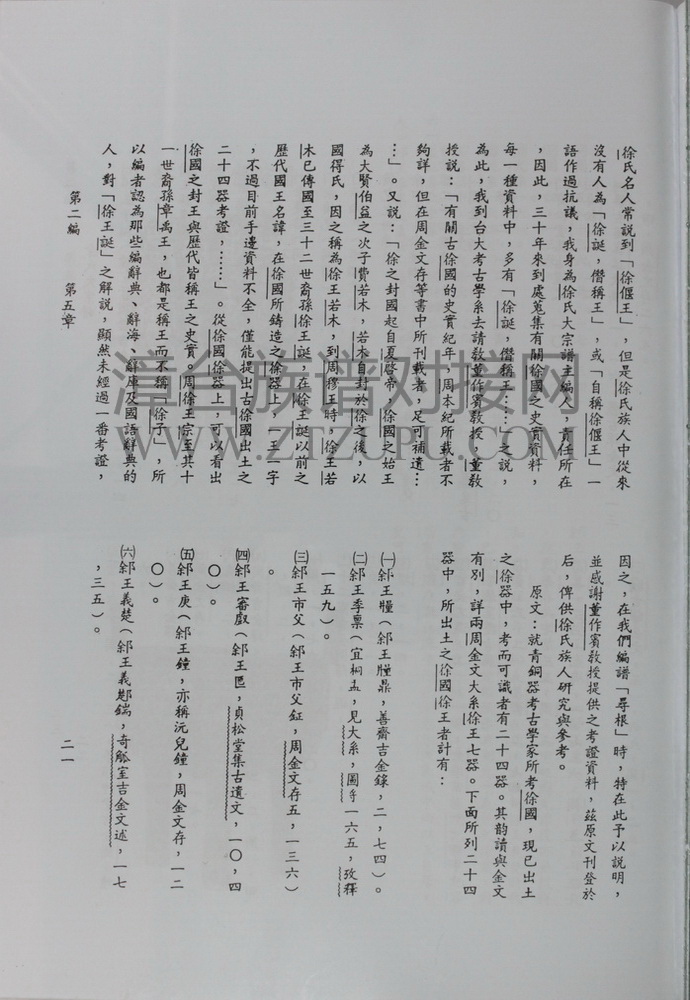 徐氏名人常說到「徐偃王」，但是徐氏族人中從來
沒有人為「徐誕，僭稱王」，或「自稱徐偃王」一
語作過抗議，我身為徐氏大宗譜主編人，責任所在
，因此，三十年來到處蒐集有關徐國之史實資料，
每一種資料中，多有「徐誕，僭稱王……」之說，
為此，我到台大考古學系去請教董作賓教授，董教
授說：「有關古徐國的史實紀年，周本紀所載者不
夠詳，但在周金文存等書中所刊載者，足可補遺…
…」。又說：「徐之封國起自夏啓帝，徐國之始王
為大賢伯益之次子費若木，若木自封於徐之後，以
國得氏，因之稱為徐王若木，到周穆王時，徐王若
木已傳國至三十二世裔孫徐王誕，在徐王誕以前之
歷代國王名諱，在徐國所鑄造之徐器上，一王一字
，不過目前手邊資料不全，僅能提出古徐國出土之
二十四器考證，……」。從徐國徐器上，可以看出
徐國之封王與歷代皆稱王之史實。周徐王宗至其十
一世裔孫章禹王，也都是稱王而不稱「徐子」，所
以編者認為那些編辭典、辭海、辭庫及國語辭典的
人，對「徐王誕」之解說，顯然未經過一番考證，
因之，在我們編譜「尋根」時，特在此予以說明，
並感謝董作賓教授提供之考證資料，茲原文刊登於
后，俾供徐氏族人研究與參考。
原文：就青銅器考古學家所考徐國，現已出土
之徐器中，考而可識者有二十四器。其韵讀與金文
有別，詳兩周金文大系徐王七器。下面所列二十四
器中，所出土之徐國徐王者計有：
㈠䣄王糧（䣄王糧鼎，善齋吉金錄，二，七四）。
㈡䣄王季稟（宜桐盂，見大系，圖乎一六五，攷釋
一五九）。
㈢䣄王巿父（䣄王巿父鉦，周金文存五，一三六）
。
㈣䣄王審㪤（䣄王㔷，貞松堂集古遺文，一〇，四
〇）。
㈤䣄王庚（䣄王鐘，亦稱沇兒鐘，周金文存，一二
〇）。
㈥䣄王義楚（䣄王義楚鍴，奇觚室吉金文述，一七
，三五）。
第二編　第五章
二一
漳台族谱对接网
WWW.ZTZUPU.COM